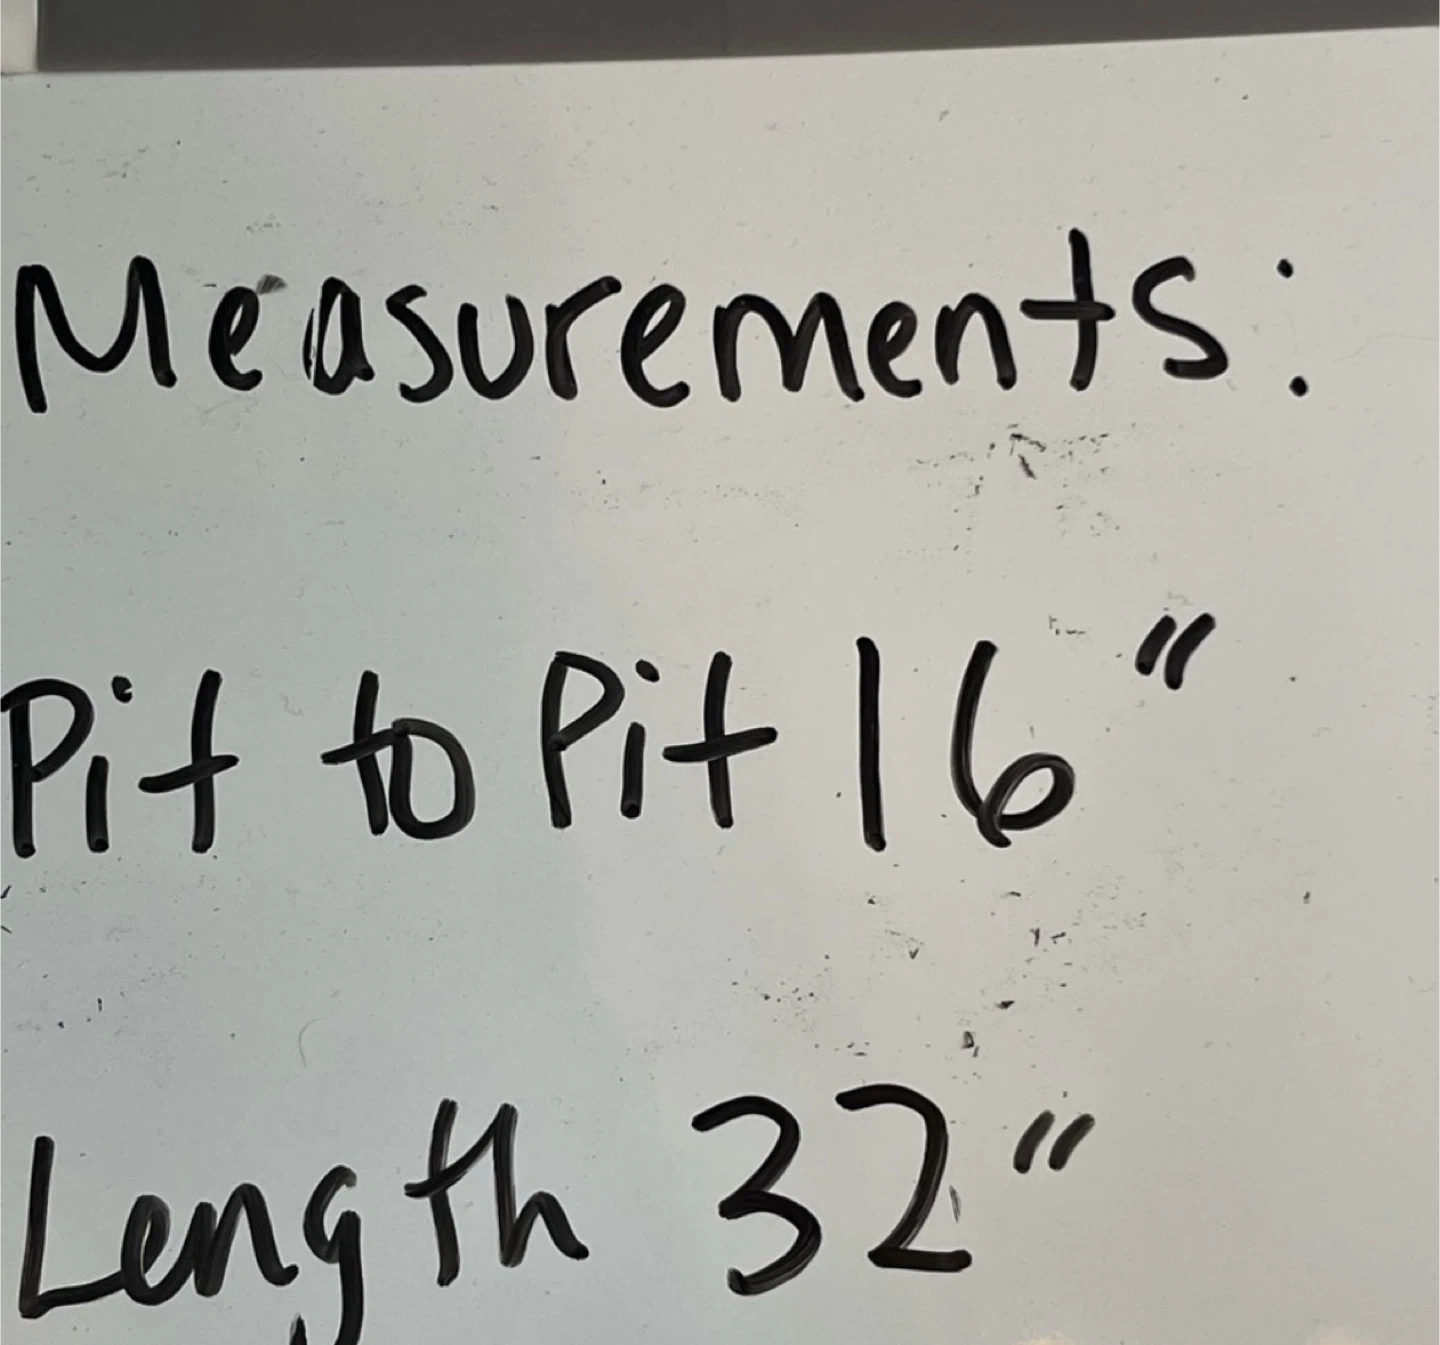 Measurements:
Pit to Pit 16"
Length 32"